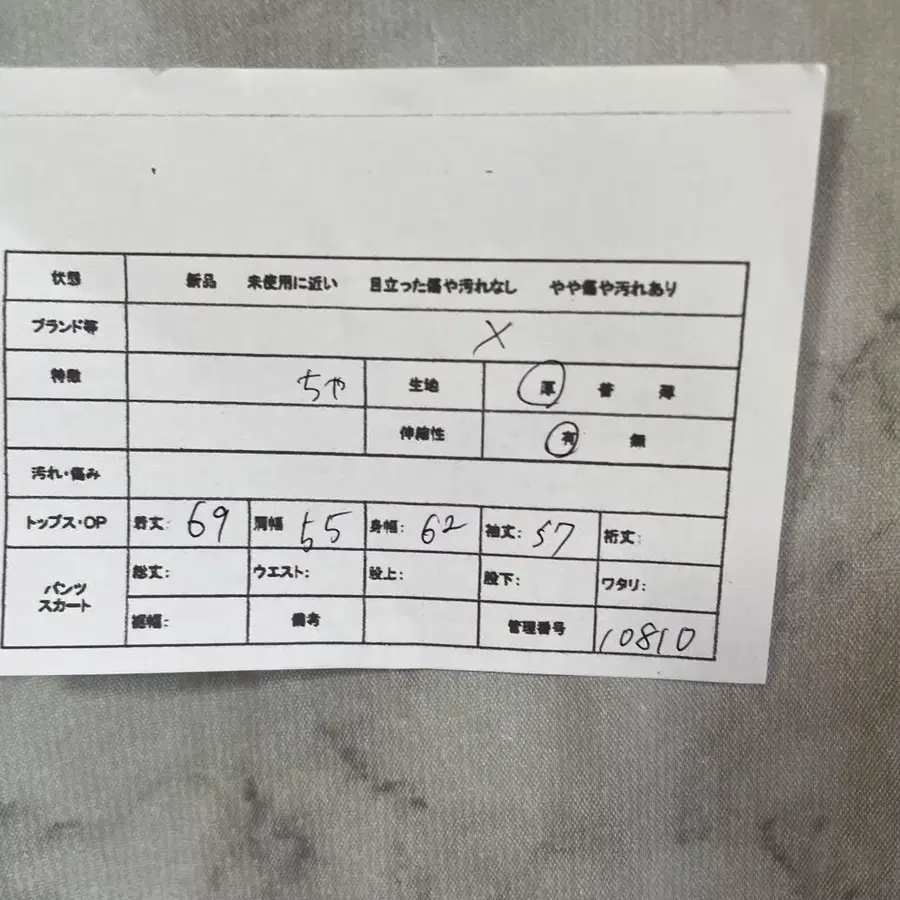 状態 新品 未使用に近い 目立った傷や汚れなし やや傷や汚れあり
ブランド等 X
特徴 ちゃ 生地 厚 普 薄
伸縮性 有 無
汚れ・傷み
トップス・OP 着丈: 69 肩幅 55 身幅: 62 袖丈: 57 裄丈:
パンツ スカート 総丈: ウエスト: 股上: 股下: ワタリ:
裾幅: 備考 管理番号 10810